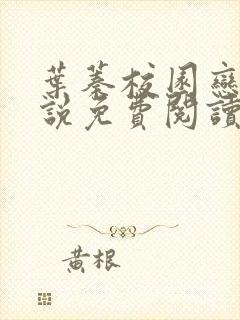 葉蓁校園戀
說免費閱讀
黃根